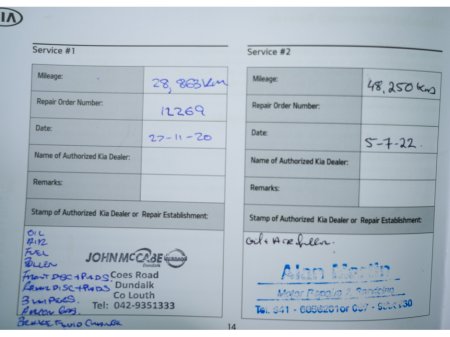 KIA
Service #1
Mileage: 28,863km
Repair Order Number: 12269
Date: 27-11-20
Name of Authorized Kia Dealer:
Remarks:
Stamp of Authorized Kia Dealer or Repair Establishment:
OIL
AIR
FUEL
POLLEN
FRONT DISC + PADS
REAR DISC + PADS
BUMPERS
AIRCON GAS.
BRAKE FLUID CHANGE
JOHN McCABE NISSAN
Dundalk
Coes Road
Dundalk
Co Louth
Tel: 042-9351333
Service #2
Mileage: 48,250 Kms
Repair Order Number:
Date: 5-7-22.
Name of Authorized Kia Dealer:
Remarks:
Stamp of Authorized Kia Dealer or Repair Establishment:
Oil + Air
Alan Martin
Motor
Tel. 041 - or 087 -
14